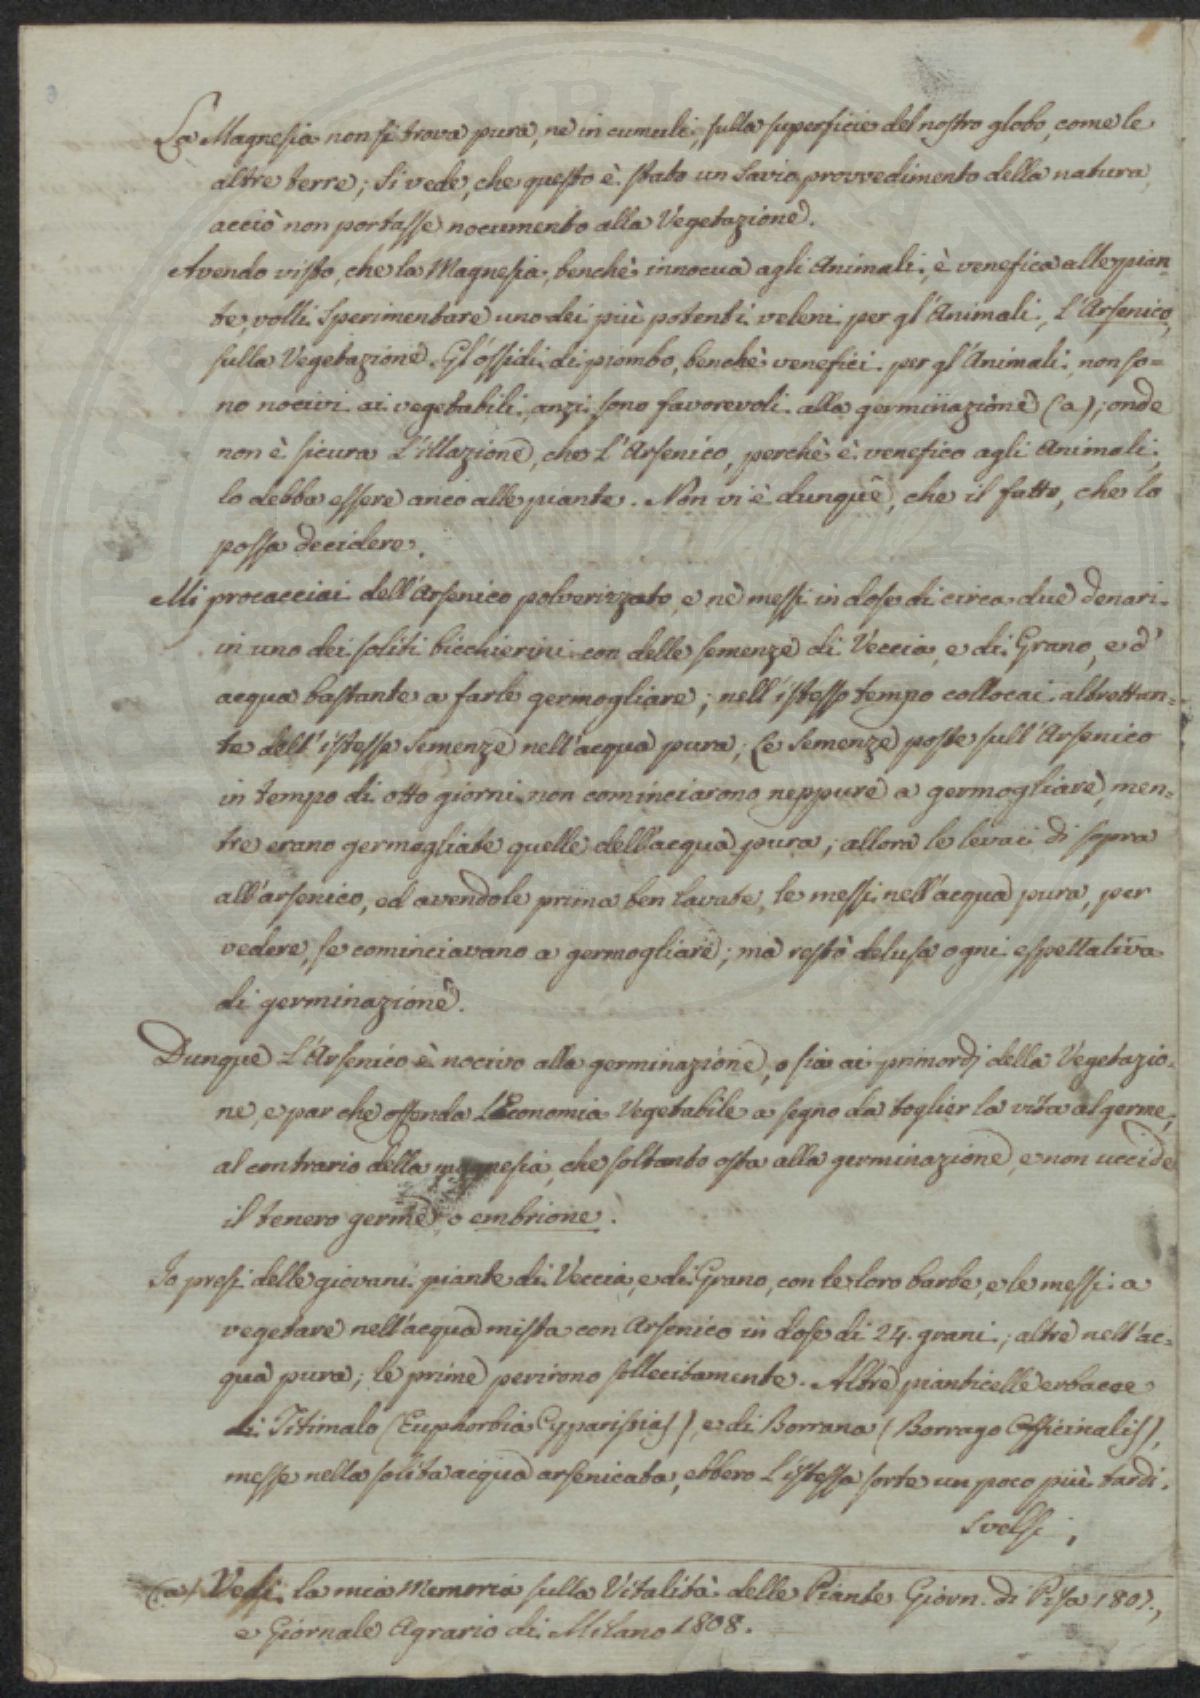 La Magnesia non si trova pura, ne in cumuli, sulla superficie del nostro globo, come le
altre terre; Si vede, che questo è stato un Savio provvedimento della natura,
acciò non portasse nocumento alla Vegetazione.
Avendo visto, che la Magnesia, benchè innocua agli Animali, è venefica alle pian-
te, volli Sperimentare uno dei più potenti veleni per gl'Animali, L'Arsenico,
sulla Vegetazione. Gl'ossidi di piombo, benchè venefici per gl'Animali, non so=
no nocivi ai vegetabili, anzi sono favorevoli alla germinazione (a); onde
non è sicura L'illazione, che L'Arsenico, perchè è venefico agli Animali,
lo debba essere anco alle piante. Non vi è dunque, che il fatto, che lo
possa decidere.
Mi procacciai dell'Arsenico polverizzato, e ne messi in dose di circa due denari
in uno dei soliti bicchierini con delle semenze di Veccia, e di Grano, e d'
acqua bastante a farle germogliare; nell'istesso tempo collocai altrettan=
te dell'istesse Semenze nell'acqua pura; Le Semenze poste sull'Arsenico
in tempo di otto giorni non cominciarono neppure a germogliare, men=
tre erano germogliate quelle dell'acqua pura; allora le levai di sopra
all'arsenico, ed avendole prima ben lavate, le messi nell'acqua pura, per
vedere, se cominciavano a germogliare; ma restò delusa ogni espettativa
di germinazione.
Dunque L'Arsenico è nocivo alla germinazione, o sia ai primordj della Vegetazio=
ne, e par che offenda L'Economia Vegetabile a segno da toglier la vita al germe,
al contrario della magnesia, che soltanto osta alla germinazione, e non uccide
il tenero germe, o embrione.
Io presi delle giovani piante di Veccia, e di Grano, con le loro barbe, e le messi a
vegetare nell'acqua mista con Arsenico in dose di 24. grani; altre nell'ac=
qua pura; le prime perirono sollecitamente. Altre pianticelle erbacee
di Titimalo (Euphorbia Cyparissias), e di Borrana (Borrago Officinalis),
messe nella solita acqua arsenicata, ebbero L'istessa sorte un poco più tardi.
Svelsi,
(a) Vedi la mia Memoria sulla Vitalità delle Piante Giorn. di Pisa 1807.,
e Giornale Agrario di Milano 1808.